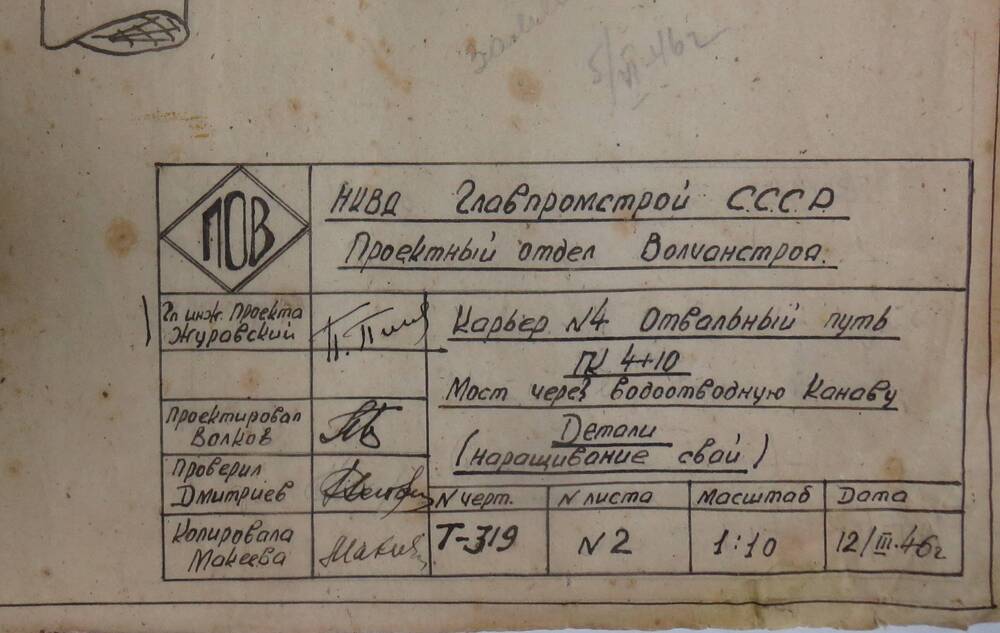 5/VI-46г
ПОВ
НКВД Главпромстрой С.С.С.Р.
Проектный отдел Волчанстроя.
Гл инж. Проекта
Журавский
Карьер №4 Отвальный путь
ПК 4+10
Мост через водоотводную Канаву
Проектировал
Волков
Детали
(наращивание свай)
Проверил
Дмитриев
N черт.
N листа
Масштаб
Дата
Копировала
Макеева
Т-319
N2
1:10
12/III.46г